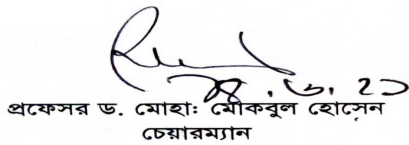 প্রফেসর ড. মোহাঃ মোকবুল হোসেন
চেয়ারম্যান